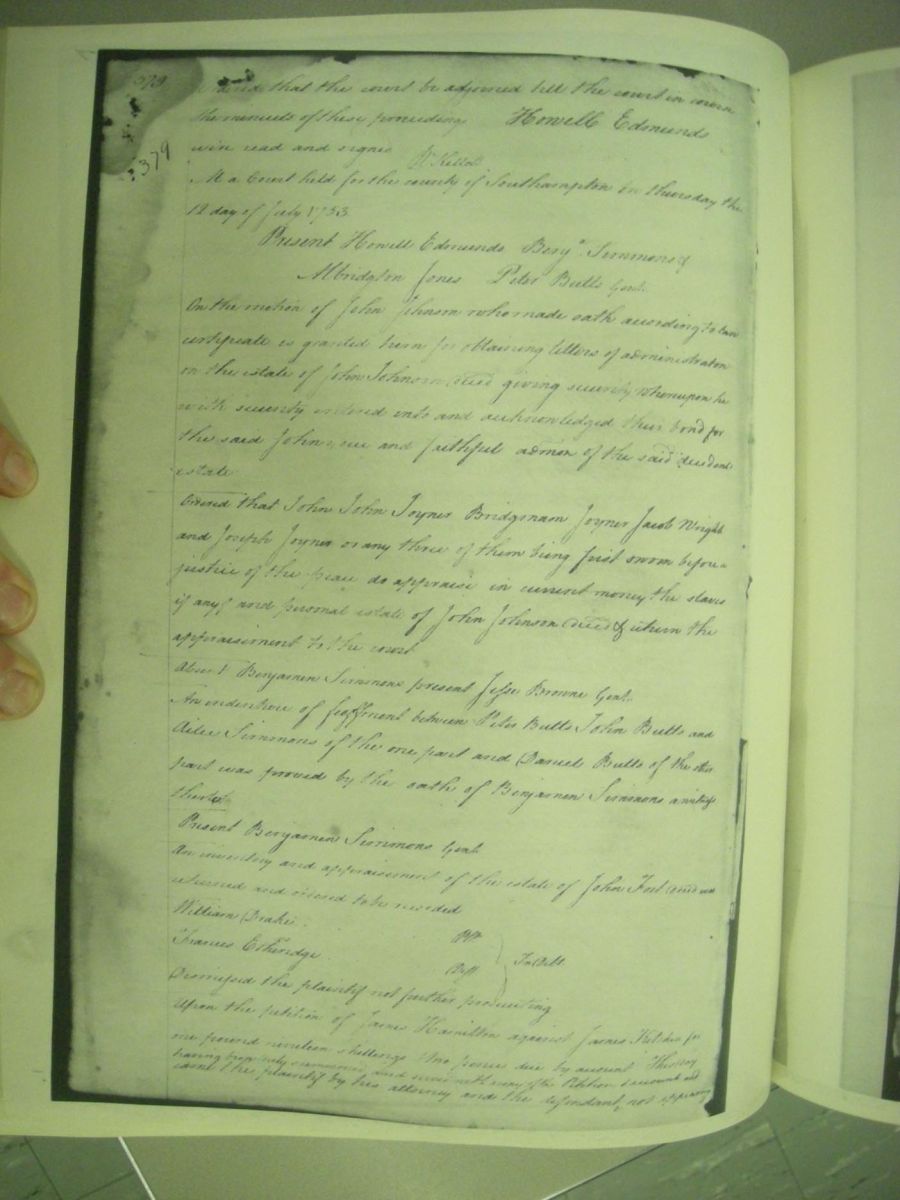 379
379
that the court be adjorned till the court in course
the minuets of these proceedings Howell Edmunds
were read and signed
At a Court held for the county of Southampton on thursday the
12 day of July 1753
Present Howell Edmunds Benjᵃ. Simmons &
Albridgton Jones Peter Butts Gent.
On the motion of John Johnson who made oath according to law
certificate is granted him for obtaining letters of administraton
on the estate of John Johnson deced giving security whereupon he
with security entered into and acknowledged their bond for
the said Johns due and faithfull admon of the said decedents
estate
Ordered that John Joyner Bridgeman Joyner Jacob Wright
and Joseph Joyner or any three of them being first sworn before a
justice of the peace do appraise in current money the slaves
if any and personal estate of John Johnson deced & return the
appraisement to the court
Absent Benjamen Simmons present Jesse Browne Gent.
An indenture of feoffment between Peter Butts John Butts and
Simmons of the one part and Daniel Butts of the other
part was proved by the oath of Benjamen Simmons a witness
thereto
Present Benjamen Simmons Gent.
An inventory and appraisement of the estate of John Fort deced was
returned and ordered to be recorded
William Drake Plt
In Debt
Frances Etheridge Deft
Dismissed the plaintif not further prosecuting
Upon the petition of James Hamilton against James for
one pound nineteen shillings & due by account This day
having been duly summoned and served with copy of the Petition & account and
came the plaintif by his attorney and the defendant, not appearing